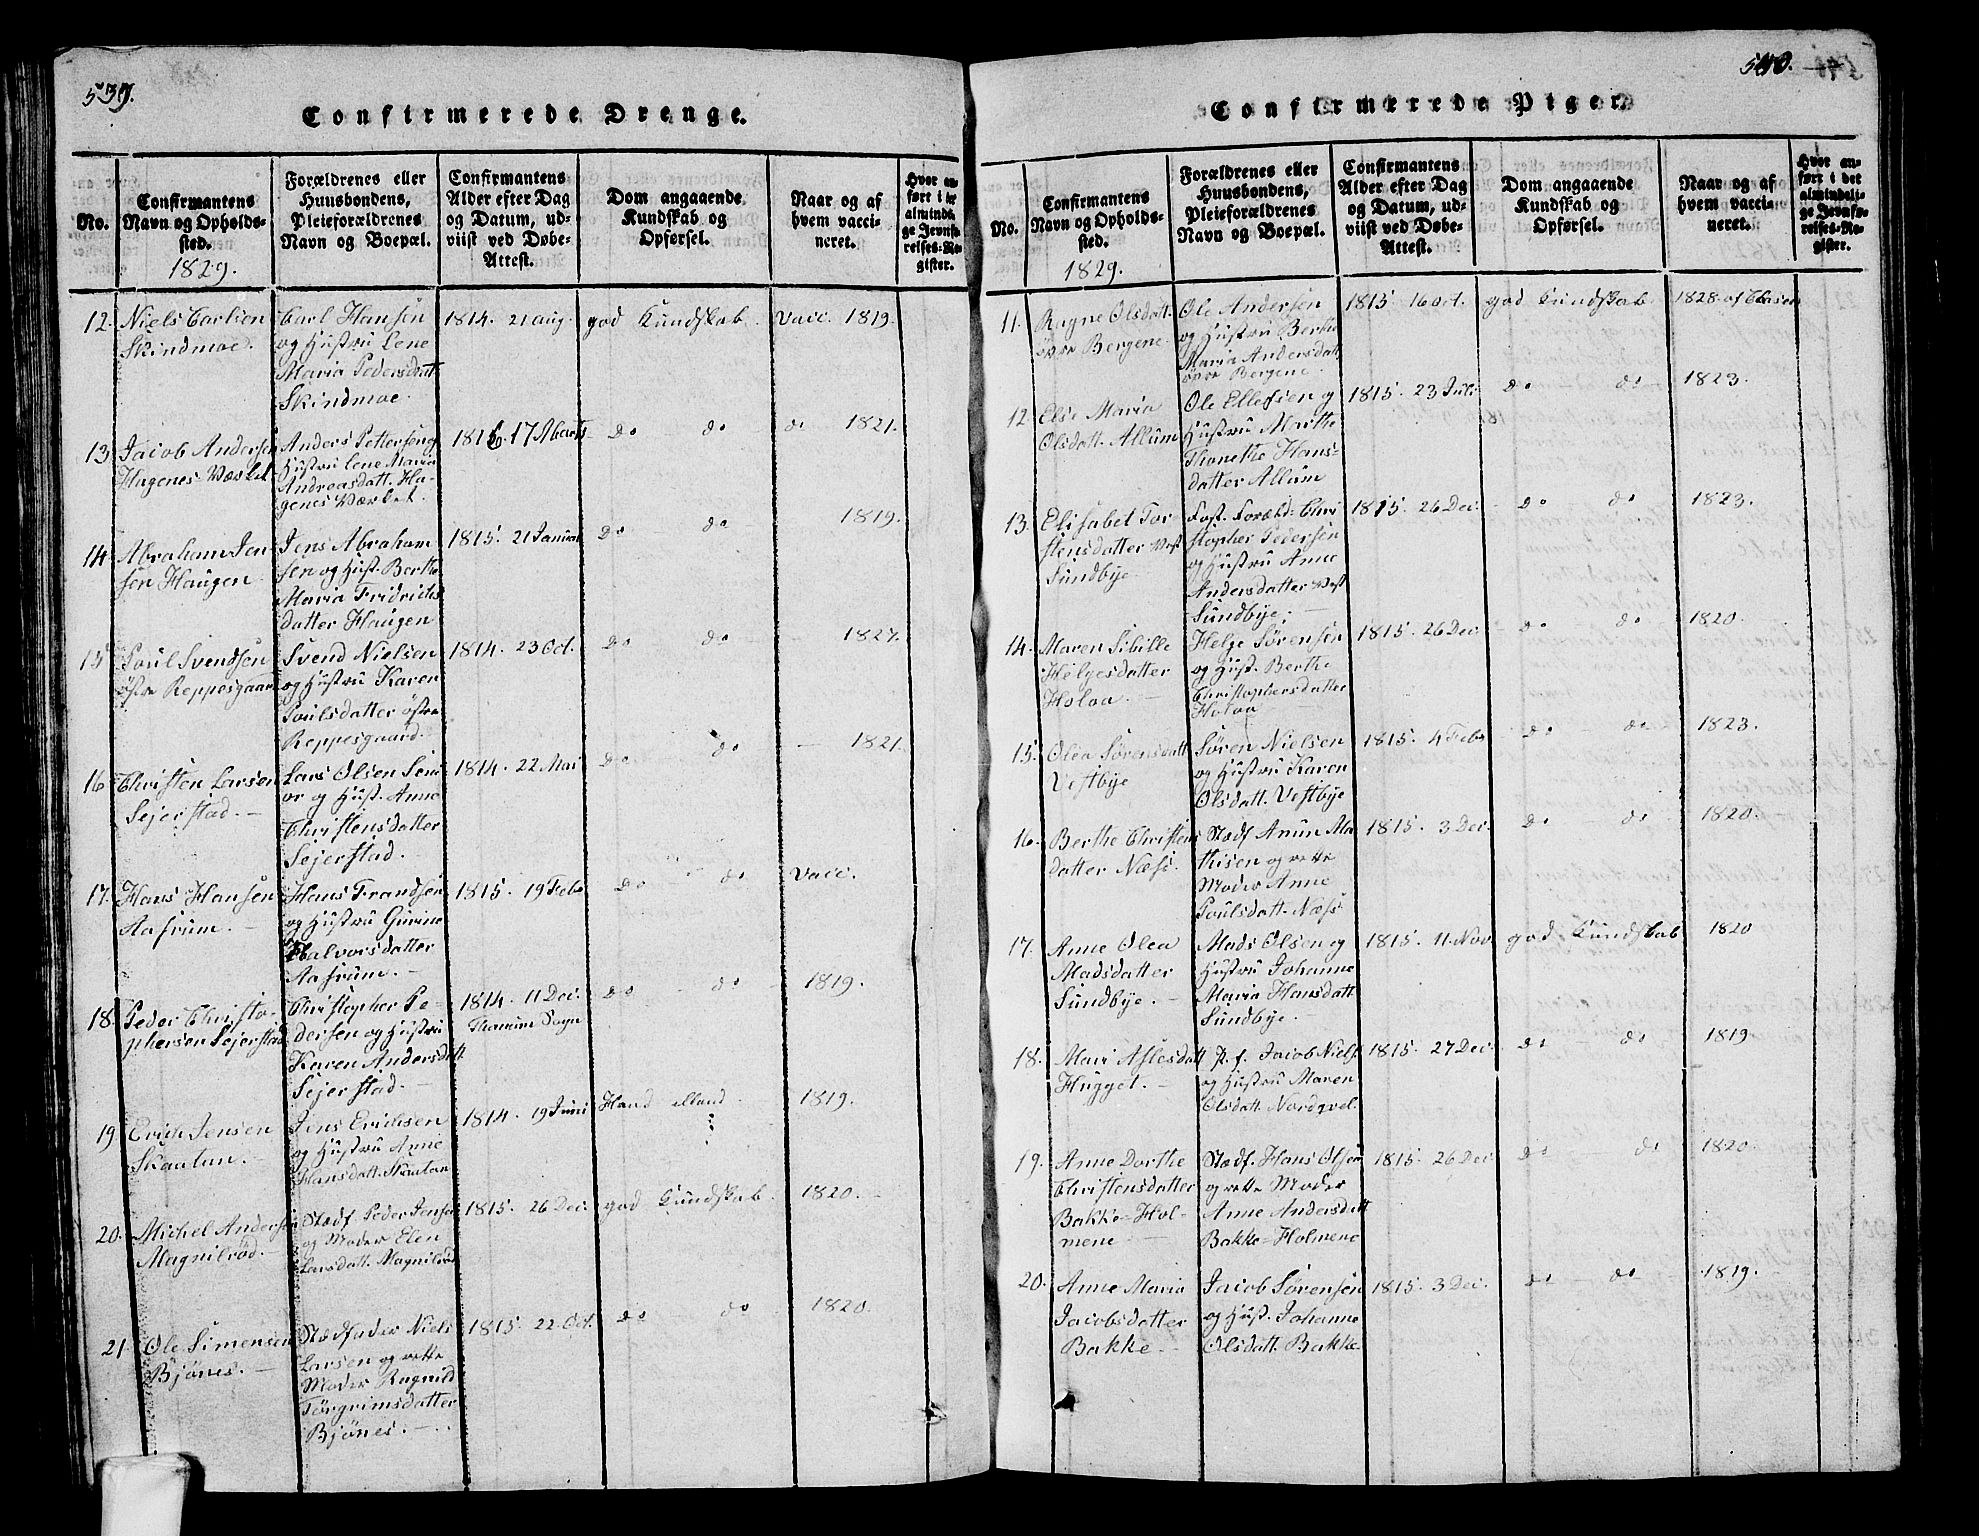 539.
Confirmerede Drenge.
No.
Confirmantens
Navn og Opholds-
sted.
1829.
Forældrenes eller
Huusbondens,
Pleieforældrenes
Navn og Boepæl.
Confirmantens
Alder efter Dag
og Datum, ud-
viist ved Døbe-
Attest.
Dom angaaende
Kundskab og
Opførsel.
Naar og af
hvem vacci-
neret.
Hvor an-
ført i det
almindeli-
ge Jevnfø-
relses-Re-
gister.
12. Niels Carlsen
Skindmoe.
Carl Hansen
og Hustru Lene
Maria Pedersdatt
Skindmoe.
1814. 21 aug.
god Kundskab.
Vacc. 1819.
13. Jacob Andersen
Hagenes Værket
Anders Pettersen og
Hustru Lene Maria
Andreasdatt. Ha-
genes Værket.
1816. 17
do do
do 1821.
14. Abraham Jen
sen Haugen
Jens Abraham
sen og Hust. Berthe
Maria Fridrichs
datter Haugen
1815. 21 Januar
do do
1819.
15 Poul Svendsen
östre Reppesgaard
Svend Nielsen
og Hustru Karen
Poulsdatter östre
Reppesgaard.
1814. 23 Oct.
do do
1827.
16 Christen Larsen
Sejerstad.
Lars Olsen Seni
or og Hust. Anne
Christensdatter
Sejerstad.
1814. 22 Mai
do do
1821.
17. Hans Hansen
Aasrum.
Hans Frandsen
og Hustru Gurine
Halvorsdatter
Aasrum.
1815. 19 Febr
do do
Vacc.
18. Peder Christo-
phersen Sejerstad
Christopher Pe-
dersen og Hustru
Karen Andersdatt
Sejerstad.
1814. 11 Dec.
Thanum Sogn
do do
1819.
19. Erich Jensen
Skautun.
Jens Erichsen
og Hustru Anne
Hansdatt. Skautun
1814. 19 Juni
1819.
20. Michel Andersen
Magnilröd.
Stedf Peder Jensen
og Moder Elen
Larsdatt. Magnilröd
1815. 26 Dec.
god Kundskab.
1820.
21. Ole Simensen
Bjönes.
Stedfader Niels
Larsen og rette
Moder Ragnild
Torgrimsdatter
Bjönes.
1815. 22 Oct.
do do
1820.
540.
Confirmerede Piger.
No.
Confirmantens
Navn og Opholds-
sted.
1829.
Forældrenes eller
Huusbondens,
Pleieforældrenes
Navn og Boepæl.
Confirmantens
Alder efter Dag
og Datum, ud-
viist ved Døbe-
Attest.
Dom angaaende
Kundskab og
Opførsel.
Naar og af
hvem vacci-
neret.
Hvor an-
ført i det
almindeli-
ge Jevnfø-
relses-Re-
gister.
11. Ragne Olsdatt.
övre Bergene
Ole Andersen
og Hustru Berthe
Maria Andersdatt
övre Bergene.
1815 16 oct.
god Kundskab
1828. af Clasen
12. Else Maria
Olsdatt. Allum
Ole Ellefsen og
Hustru Marthe
Thonethe Hans-
datter Allum
1815. 23 Juli
do do
1823.
13. Elisabet Tor
stensdatter Vest
Sundbye.
Fost. Foræld: Chri
stopher Pedersen
og Hustru Anne
Andersdatter Vest
Sundbye.
1815. 26 Dec.
do do
1823.
14. Maren Sibille
Helgesdatter
Holaa.
Helge Sørensen
og Hust. Berthe
Christophersdatter
Holaa
1815. 26 Dec
do do
1820
15. Olea Sørensdatt
Vestbye
Søren Nielsen
og Hustru Karen
Olsdatt. Vestbye
1815. 4 Febr
do do
1823.
16. Berthe Christens
datter Næss.
Stedf Anun Ma
thisen og rette
Moder Anne
Poulsdatt. Næss
1815. 3 Dec.
do do
1820.
17. Anne Olea
Madsdatter
Sundbye.
Mads Olsen og
Hustru Johanne
Maria Hansdatt
Sundbye.
1815. 11. Nov
god Kundskab
1820
18. Mari Aslesdatt
Hugget.
P. f. Jacob Niels.
og Hustru Maren
Olsdatt. Nordqvel.
1815. 27 Dec.
do do
1819
19. Anne Dorthe
Christensdatter
Bakke-Hol-
mene
Stedf. Hans Olsen
og rette Moder
Anne Andersdatt
Bakke-Holmene
1815. 26 Dec
do do
1820.
20. Anne Maria
Jacobsdatter
Bakke.
Jacob Sørensen
og Hust. Johanne
Olsdatt. Bakke
1815. 3 Dec.
do do
1819.